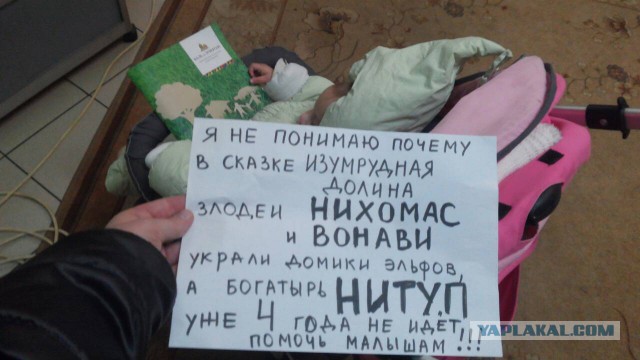 Я НЕ ПОНИМАЮ ПОЧЕМУ
В СКАЗКЕ ИЗУМРУДНАЯ
ДОЛИНА
ЗЛОДЕИ НИХОМАС
И ВОНАВИ
УКРАЛИ ДОМИКИ ЭЛЬФОВ,
А БОГАТЫРЬ НИТУП
УЖЕ 4 ГОДА НЕ ИДЕТ
ПОМОЧЬ МАЛЫШАМ !!!
YAPLAKAL.COM